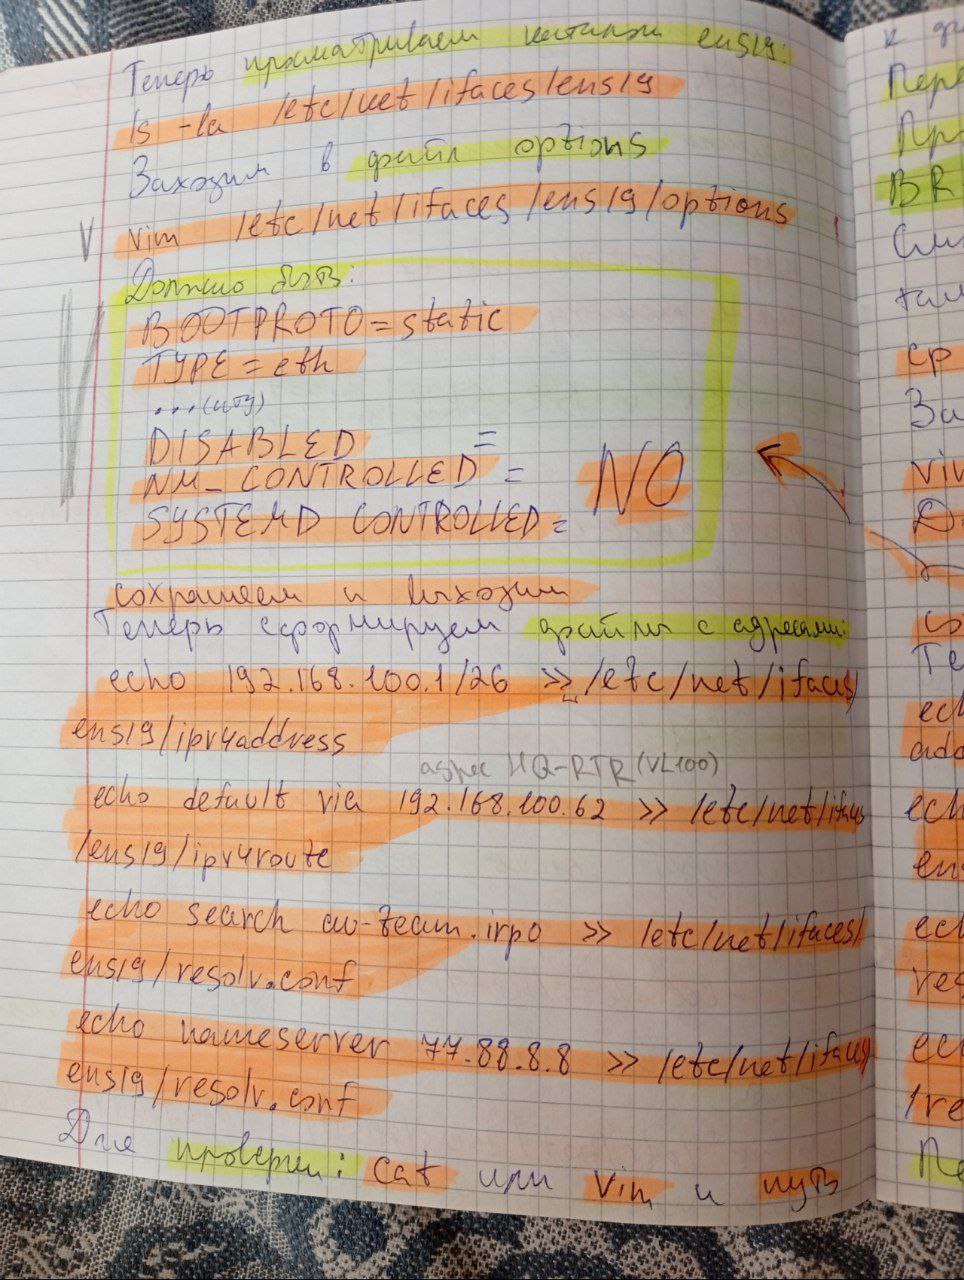 Теперь просматриваем каталог ens19:
ls -la /etc/net/ifaces/ens19
Заходим в файл options
V vim /etc/net/ifaces/ens19/options
Должно быть:
BOOTPROTO=static
TYPE=eth
...(итд)
DISABLED =
NM_CONTROLLED =
SYSTEMD CONTROLLED=
NO
сохраняем и выходим
Теперь сформируем файлы с адресами:
echo 192.168.100.1/26 >> /etc/net/ifaces/
ens19/ipv4address
адрес HQ-RTR (VL100)
echo default via 192.168.100.62 >> /etc/net/ifaces
/ens19/ipv4route
echo search au-team.irpo >> /etc/net/ifaces/
ens19/resolv.conf
echo nameserver 77.88.8.8 >> /etc/net/ifaces/
ens19/resolv.conf
Для проверки: cat или vim и путь
к
Пере
Пр
BR
там
cp
За
vim
Те
ech
add
ech
ens
ech
res
ech
/re